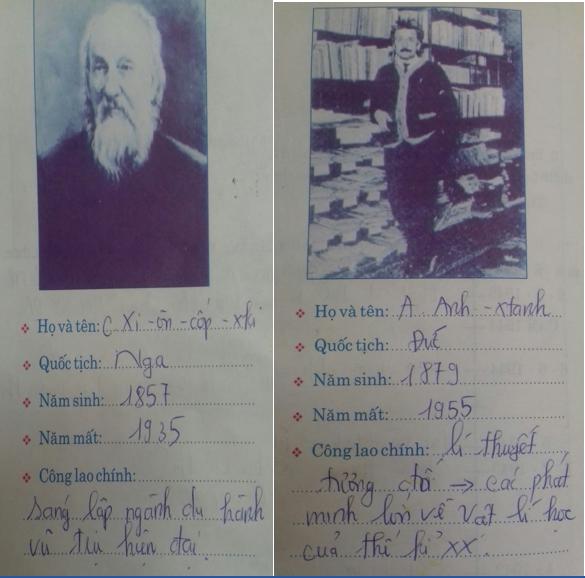 Họ và tên: C Xi -ôn -cốp -xki
Quốc tịch: Nga
Năm sinh: 1857
Năm mất: 1935
Công lao chính:
sáng lập ngành du hành
vũ trụ hiện đại.
Họ và tên: A Anh -xtanh
Quốc tịch: Đức
Năm sinh: 1879
Năm mất: 1955
Công lao chính: lí thuyết
tương đối → các phát
minh lớn về vật lí học
của thế kỉ XX.